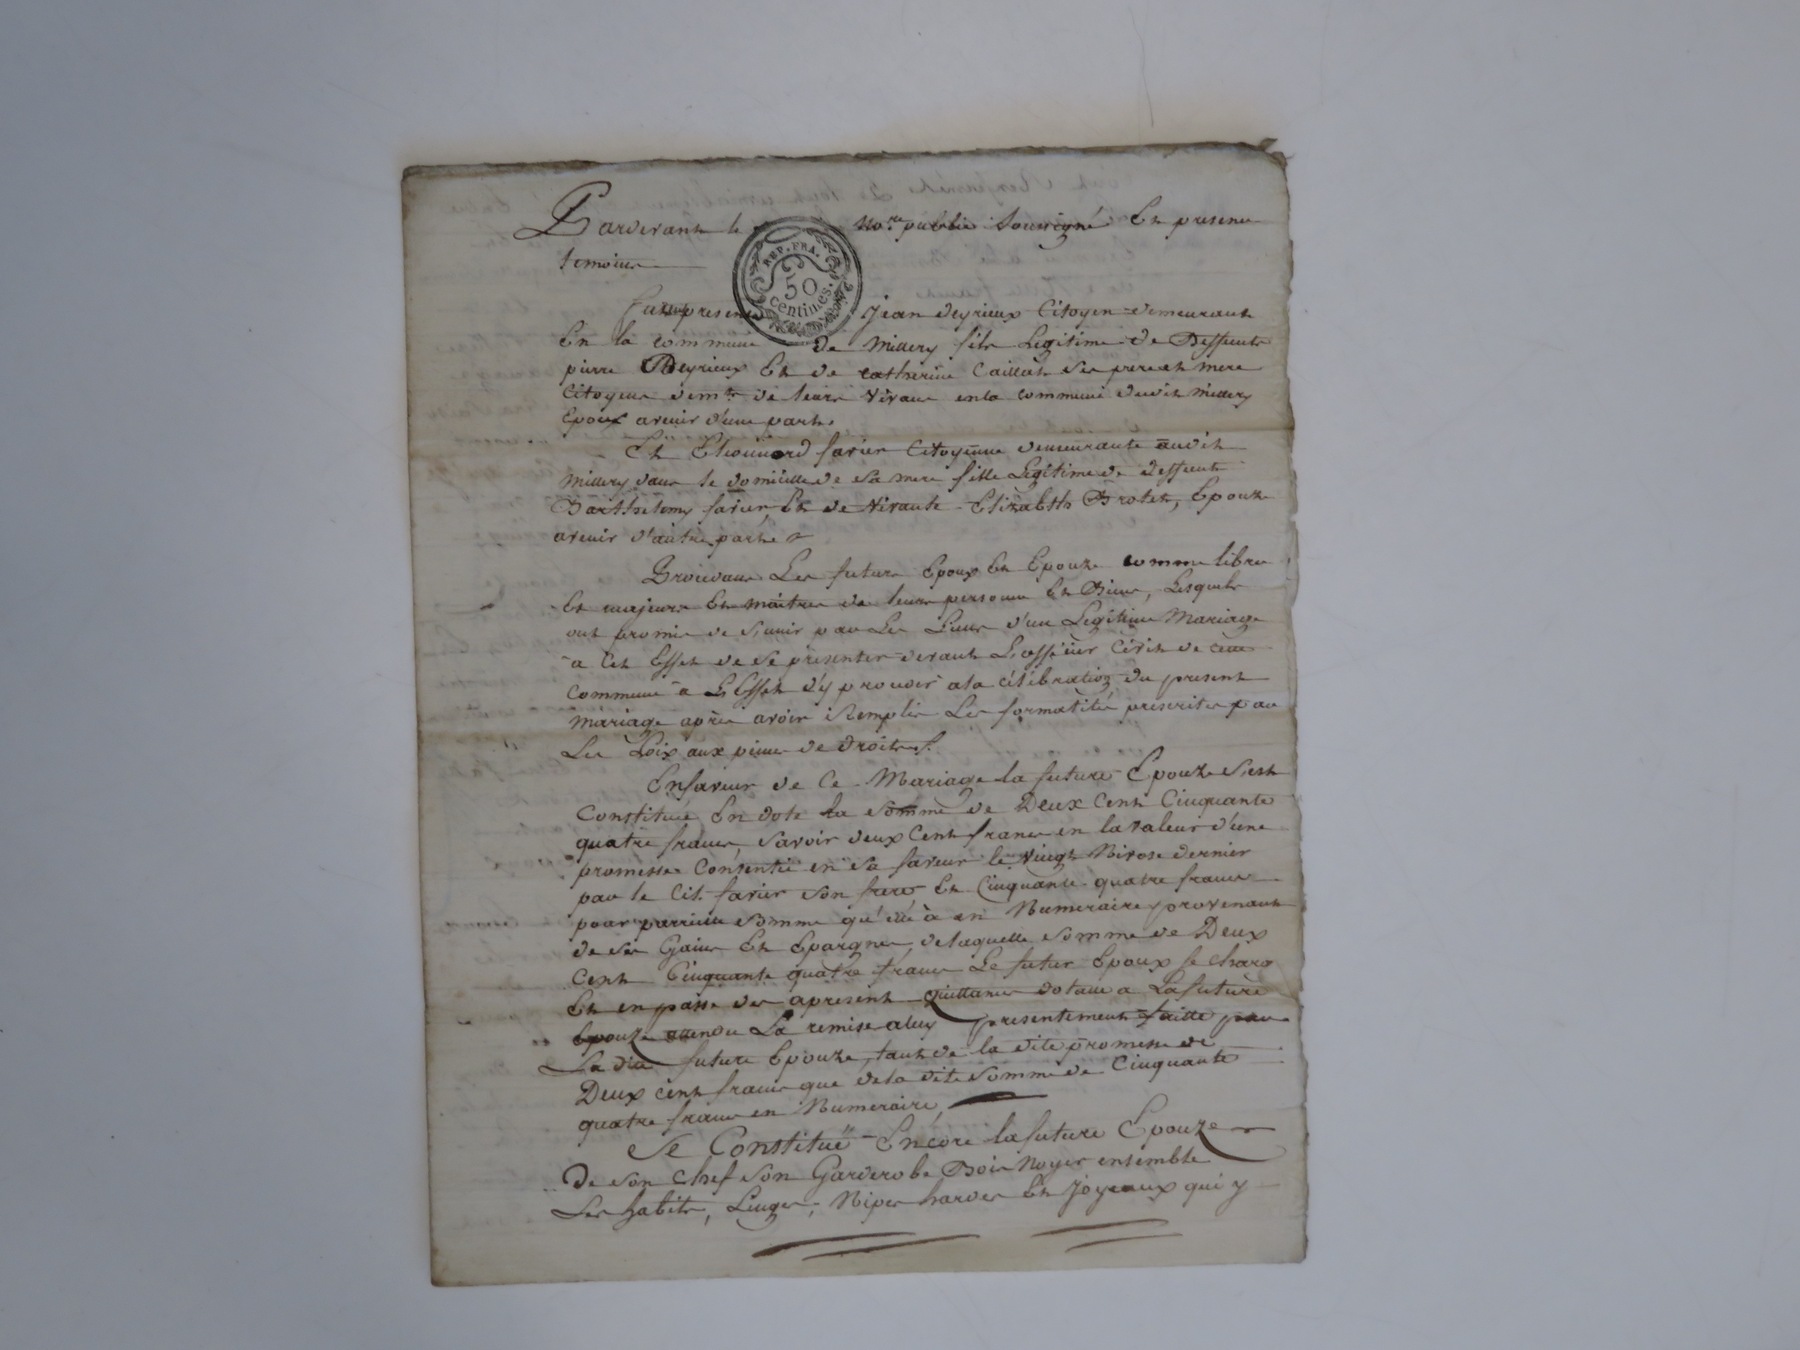 Pardevant le no.re public Soussigné En presence
temoins
REP. FRA.
50
centimes.
furent presents Jean deyrieux Citoyen demeurant
En la commune de Millery fils Legitime de Deffunt
pierre Deyrieux Et de catherine Caillat Ses pere et mere
Citoyens dem.ts de leurs vivans en la commune dudit Millery
Epoux avenir d'une part.
Et favier Citoyenne demeurante audit
Millery dans le domicille de Sa mere fille Legitime de deffunt
Barthelemy favier Et de vivante Elizabeth Brotet, Epouze
avenir d'autre part
Procedans Les futurs Epoux Et Epouze comme libres
Et majeurs Et maitres de leurs personne Et Biens, Lesquels
ont promis de S'unir par Les Liens d'un Legitime Mariage
a Cet Effet de Se presenter devant L'officier Civil de cette
commune a L'Effet d'y proceder a la célébration du present
mariage aprés avoir Remplir Les formalités prescrites par
Les Loix aux peines de droits.
En faveur de Ce Mariage la future Epouze S'est
Constituée En dote la Somme de Deux Cent Cinquante
quatre francs, Savoir deux Cent francs en la valeur d'une
promesse Consentie en Sa faveur le vingt Nivose dernier
par le Cit. favier Son frere Et Cinquante quatre francs
pour parreille Somme qu'elle à en Numeraire provenant
de Ses Gains Et Epargnes, de laquelle Somme de Deux
Cent Cinquante quatre francs Le futur Epoux Se charge
Et en passe des apresent quittance dotalle a La future
Epouze attendu La remise a luy presentement faitte par
La dite future Epouze, tant de la dite promesse de
Deux cent francs que de la dite Somme de Cinquante
quatre francs en Numeraire
Se Constitue Encore la future Epouze
De son chef Son Garderobe Bois Noyer ensemble
Les habits, Linges, Nipes hardes Et Joyeaux qui y